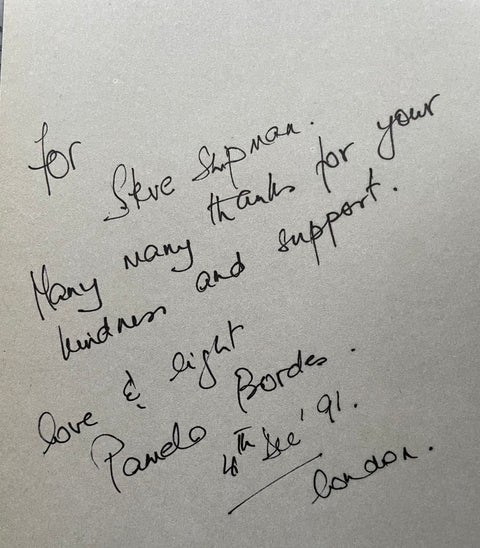 for
Steve Shipman.
Many many thanks for your
kindness and support.
love & light
Pamela Bordes.
4th Dec '91.
London.